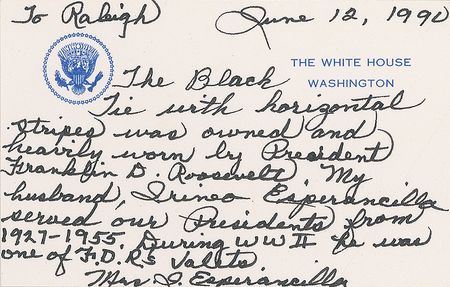 To Raleigh June 12, 1990
THE WHITE HOUSE
WASHINGTON
The Black
Tie with horizontal
stripes was owned and
heavily worn by President
Franklin D. Roosevelt. My
husband, Irineo Esperancilla
served our Presidents from
1927-1955. During WW II he was
one of F.D.R.S Valets
Mrs I. Esperancilla